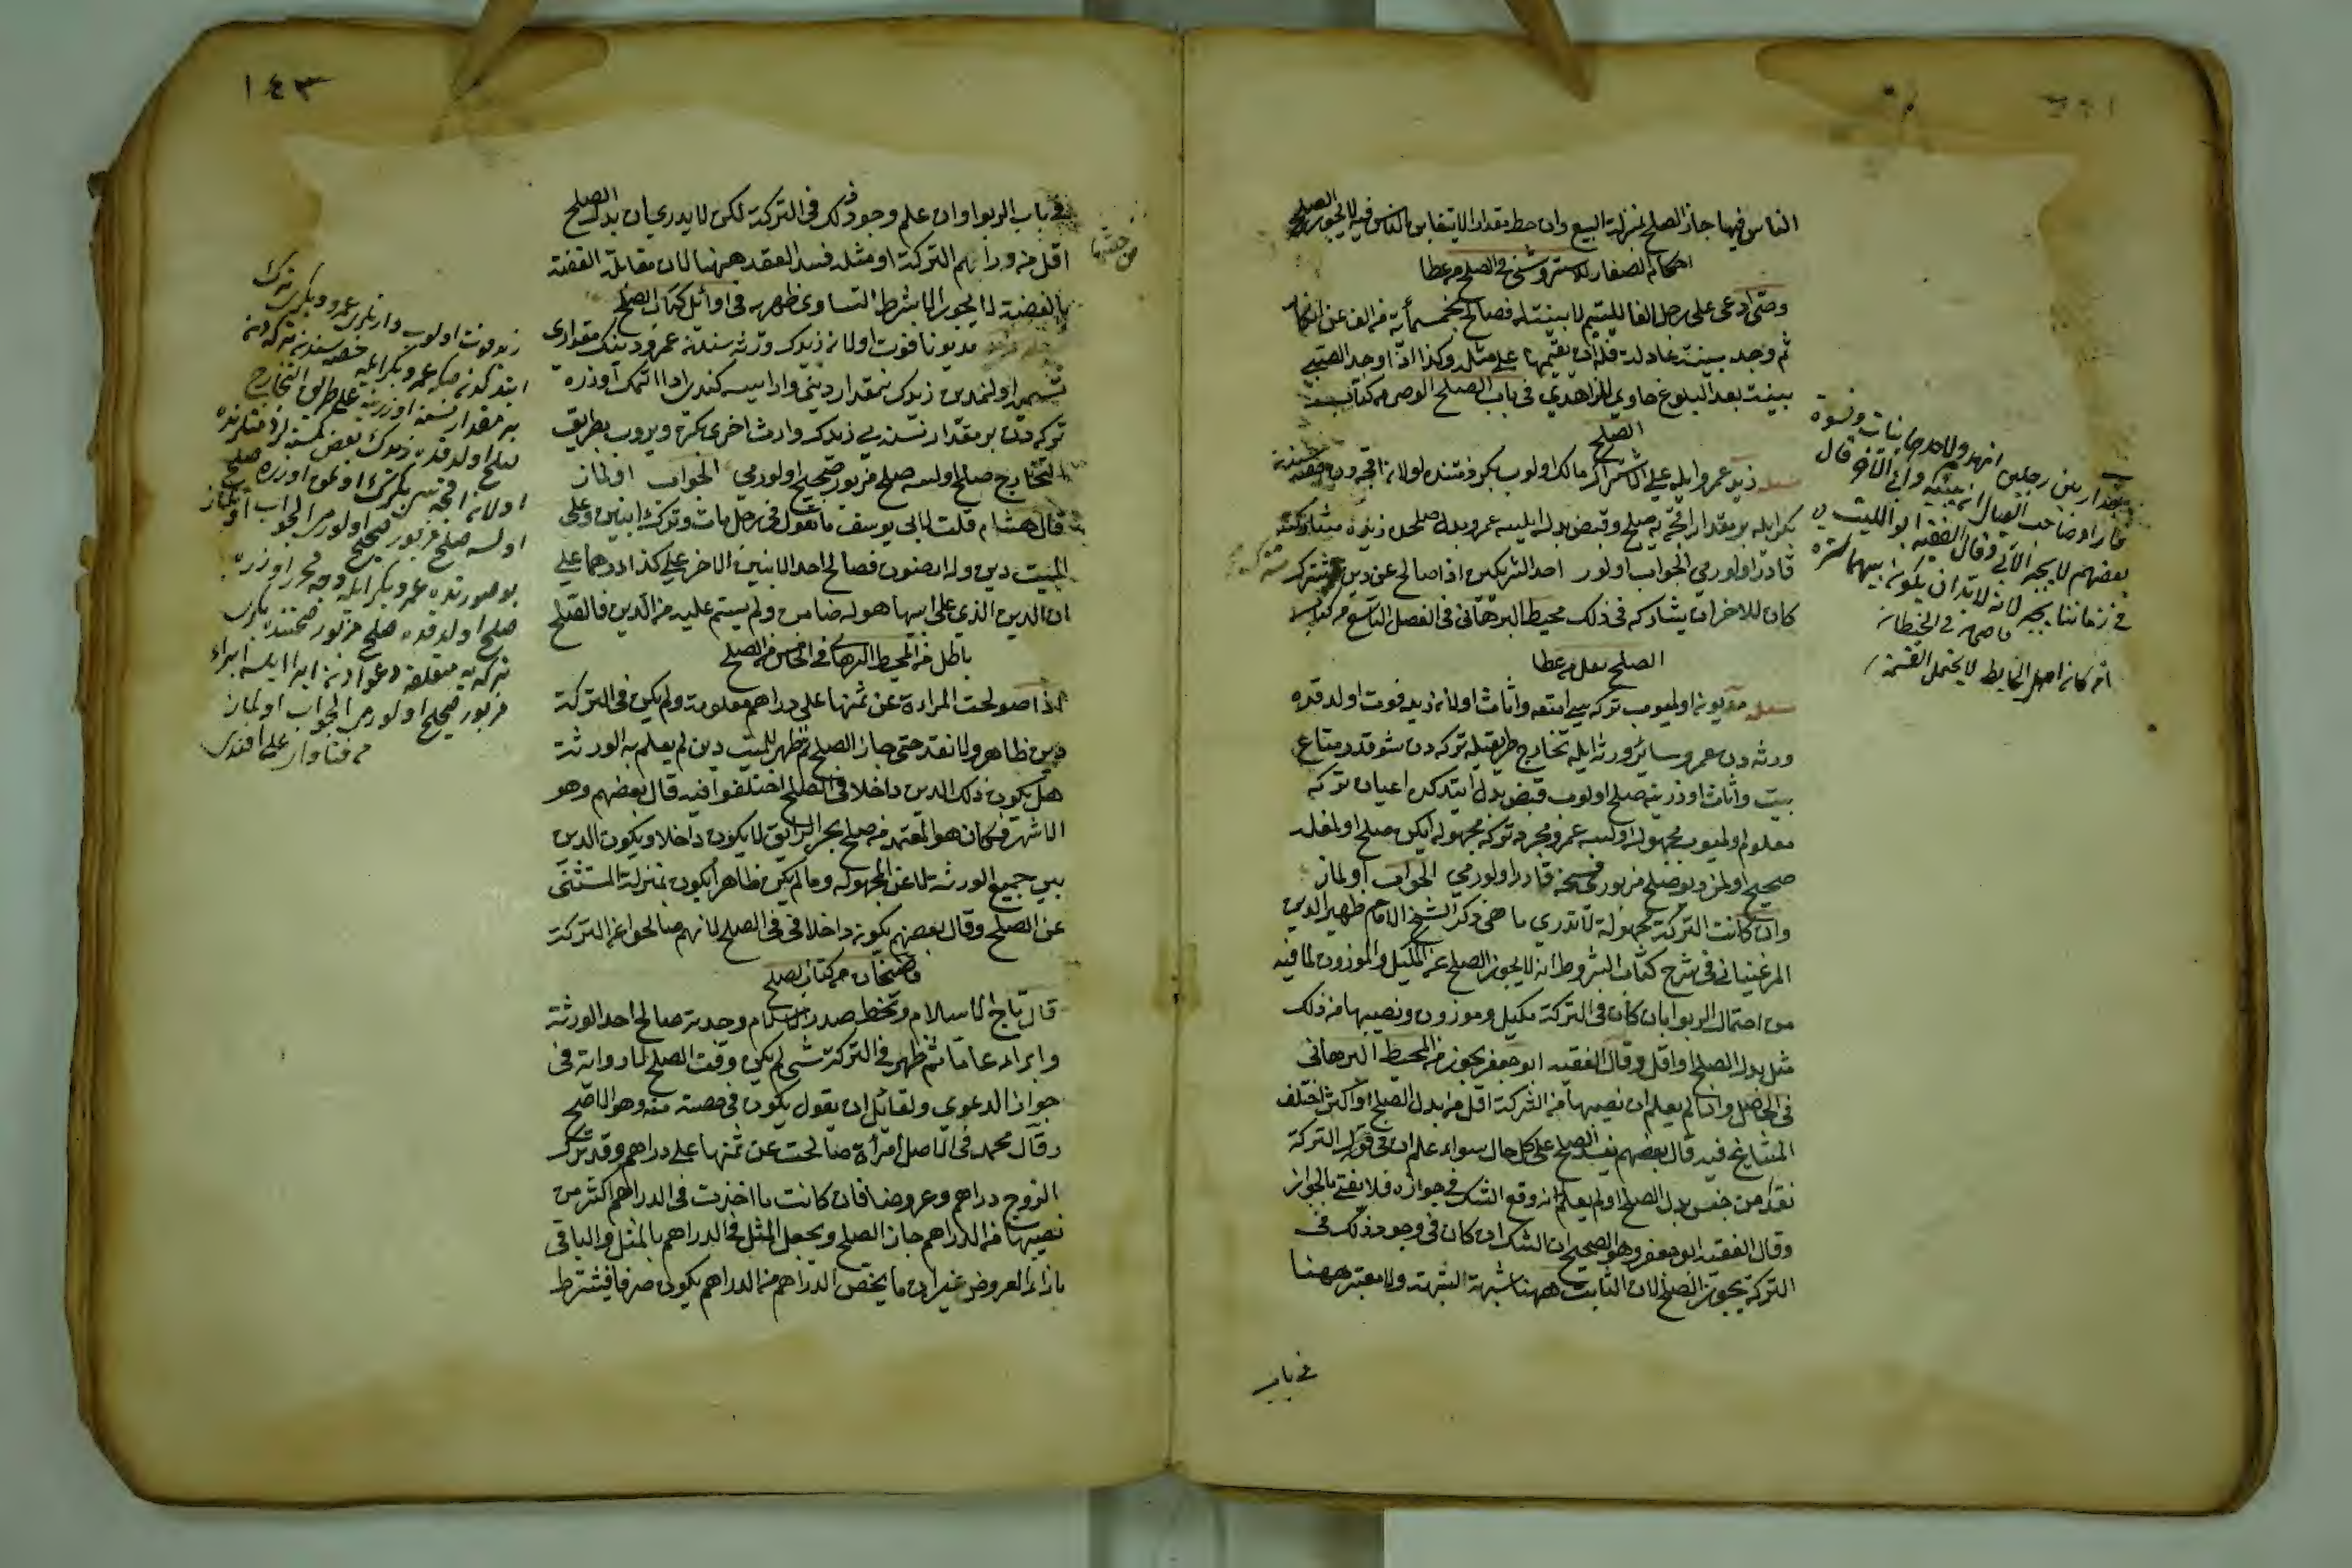 الناس فيها جاز الصلح بمنزلة البيع وان حط مقدار الا يتغابن الناس فيه لا يجوز الصلح
احكام الصغار للاستروشنى فى الصلح م عطا
وصى ادعى على رجل الفا لليتيم لا بينة له فصالح بخمسمأية من الف عن انكار
ثم وجد بينة عادلة فله ان يقيمها على مثله وكذا اذا وجد الصبى
بينة بعد البلوغ حاوى للزاهدى فى باب الصلح الوصى من كتاب
الصلح
زيد عمرو ايله على الاشتراك مالك اولوب بكر ذمتنده اولان اقچه دن حصه سندن
بكر ايله بر مقدار اقچه يه صلح وقبض بدل ايلسه عمرو بدل صلحى زيده مشاركته
قادر اولورمى الجواب اولور احد الشريكين اذا صالح عن دين مشترك
كان للاخر ان يشاركه فى ذلك محيط البرهانى فى الفصل التاسع من كتاب
الصلح نقل م عطا
مديون اولميوب تركه سى امتعه واثاث اولان زيد فوت اولدقده
ورثه دن عمرو سائر ورثه ايله تخارج طريقيله تركه دن شو قدر متاع
بيت واثاث اوزرينه صلح اولوب قبض بدل ايتدكده اعيان تركه
معلوم اولميوب مجهوله اولسه عمرو مجرد تركه مجهوله ايكن صلح اولمغله
صحيح اولمز ديو صلح مزبورى فسخه قادر اولورمى الجواب اولماز
وان كانت التركة مجهولة لا تدرى ما هى ذكر الشيخ الامام ظهير الدين
المرغينانى فى شرح كتاب الشروط انه لا يجوز الصلح عن المكيل والموزون لما فيه
من احتمال الربوا بان كان فى التركة مكيل وموزون ونصيبها من ذلك
مثل بدل الصلح او اقل وقال الفقيه ابو جعفر يجوز من المحيط البرهانى
وان لم يعلم ان نصيبها من التركة اقل من بدل الصلح او اكثر اختلف
المشايخ فيه قال بعضهم يفسد الصلح على كل حال سواء علم ان فى التركة
نقدا من جنس بدل الصلح او لم يعلم لانه وقع الشك فى جوازه فلا يفتى بالجواز
وقال الفقيه ابو جعفر وهو الصحيح ان الشك ان كان فى وجود ذلك فى
التركة يجوز الصلح لان الثابت ههنا شبهة الشبهة ولا معتبر ههنا
فى باب
جدار بين رجلين انهدم ولاحدهما بنات ونسوة
فاراد صاحب العيال ان يبنيه وابى الآخر قال
بعضهم لا يجبر الآبى وقال الفقيه ابو الليث
فى زماننا يجبر لانه لا بد ان يكون بينهما سترة
قاضيخان فى الحيطان
ان كان اصل الحايط لا يحتمل القسمة
١٤٣
فى باب الربوا وان علم وجود ذلك فى التركة لكن لا يدرى ان بدل الصلح
اقل من دراهم التركة او مثله فسد العقد ههنا لان مقابلة الفضة
بالفضة لا يجوز الا بشرط التساوى ظهيريه فى اوائل كتاب الصلح
مديونا فوت اولان زيدك ورثه سندن عمرو دينك مقدارى
اولنمدين زيدك نمقدار دينى وار ايسه كندى ادا ايتمك اوزره
تركه دن بر مقدار نسنه يى زيدك وارث اخرى بكره ويروب بطريق
التخارج صلح اولسه صلح مزبور صحيح اولورمى الجواب اولماز
قال هشام قلت لابى يوسف ما تقول فى رجل مات وترك ابنين وعلى
الميت دين وله ارضون فصالح احد الابنين الاخر على كذا درهما على
ان الدين الذى على ابيها هو له ضامن ولم يسم عليه من الدين فالصلح
باطل من المحيط البرهانى فى الخامس من الصلح
اذا صولحت المراءة عن ثمنها على دراهم معلومة ولم يكن فى التركة
دين ظاهر ولا نقد حتى جاز الصلح ثم ظهر للميت دين لم يعلم به الورثة
هل يكون ذلك الدين داخلا فى الصلح اختلفوا فيه قال بعضهم وهو
الاشهر فكان هو المعتمد من صلح بحر الرائق لا يكون داخلا ويكون الدين
بين جميع الورثة لا عن المجهولة وما لم يكن ظاهرا يكون بمنزلة المستثنى
عن الصلح وقال بعضهم يكون داخلا فى الصلح لانهم صالحوا عن التركة
قاضيخان من كتاب الصلح
قال تاج الاسلام وبخط صدر الاسلام وجدته صالح احد الورثة
وابراء عاما ثم ظهر فى التركة شى لم يكن وقت الصلح لا رواية فى
جواز الدعوى ولقائل ان يقول يكون فى حصته منه وهو الاصح
وقال محمد فى الاصل امرأة صالحت عن ثمنها على دراهم وقد ترك
الزوج دراهم وعروضا فان كانت ما اخذت فى الدراهم اكثر من
نصيبها من الدراهم جاز الصلح ويجعل المثل فى الدراهم بالمثل والباقى
بازاء العروض غير ان ما يخص الدراهم من الدراهم يكون صرفا فيشترط
زيد فوت اولوب وارثلرى عمرو وبكرى ترك
ايتدكدنصكره عمرو بكر ايله حصه سندن تركه دن
بر مقدار نسنه اوزرينه على طريق التخارج
صلح اولدقده زيدك بعض كمسنه لر ذمتلرنده
اولان اقچه سن بكره ترك اولنمق اوزره صلح
اولسه صلح مزبور صحيح اولورمى الجواب اولماز
بو صورتده عمرو بكر ايله وجه محرر اوزره
صلح اولدقده صلح مزبور ضمننده بكرك
تركه يه متعلقه دعوادن ابرا ايلسه ابراء
مزبور صحيح اولورمى الجواب اولماز
م فتاواى عطا افندى